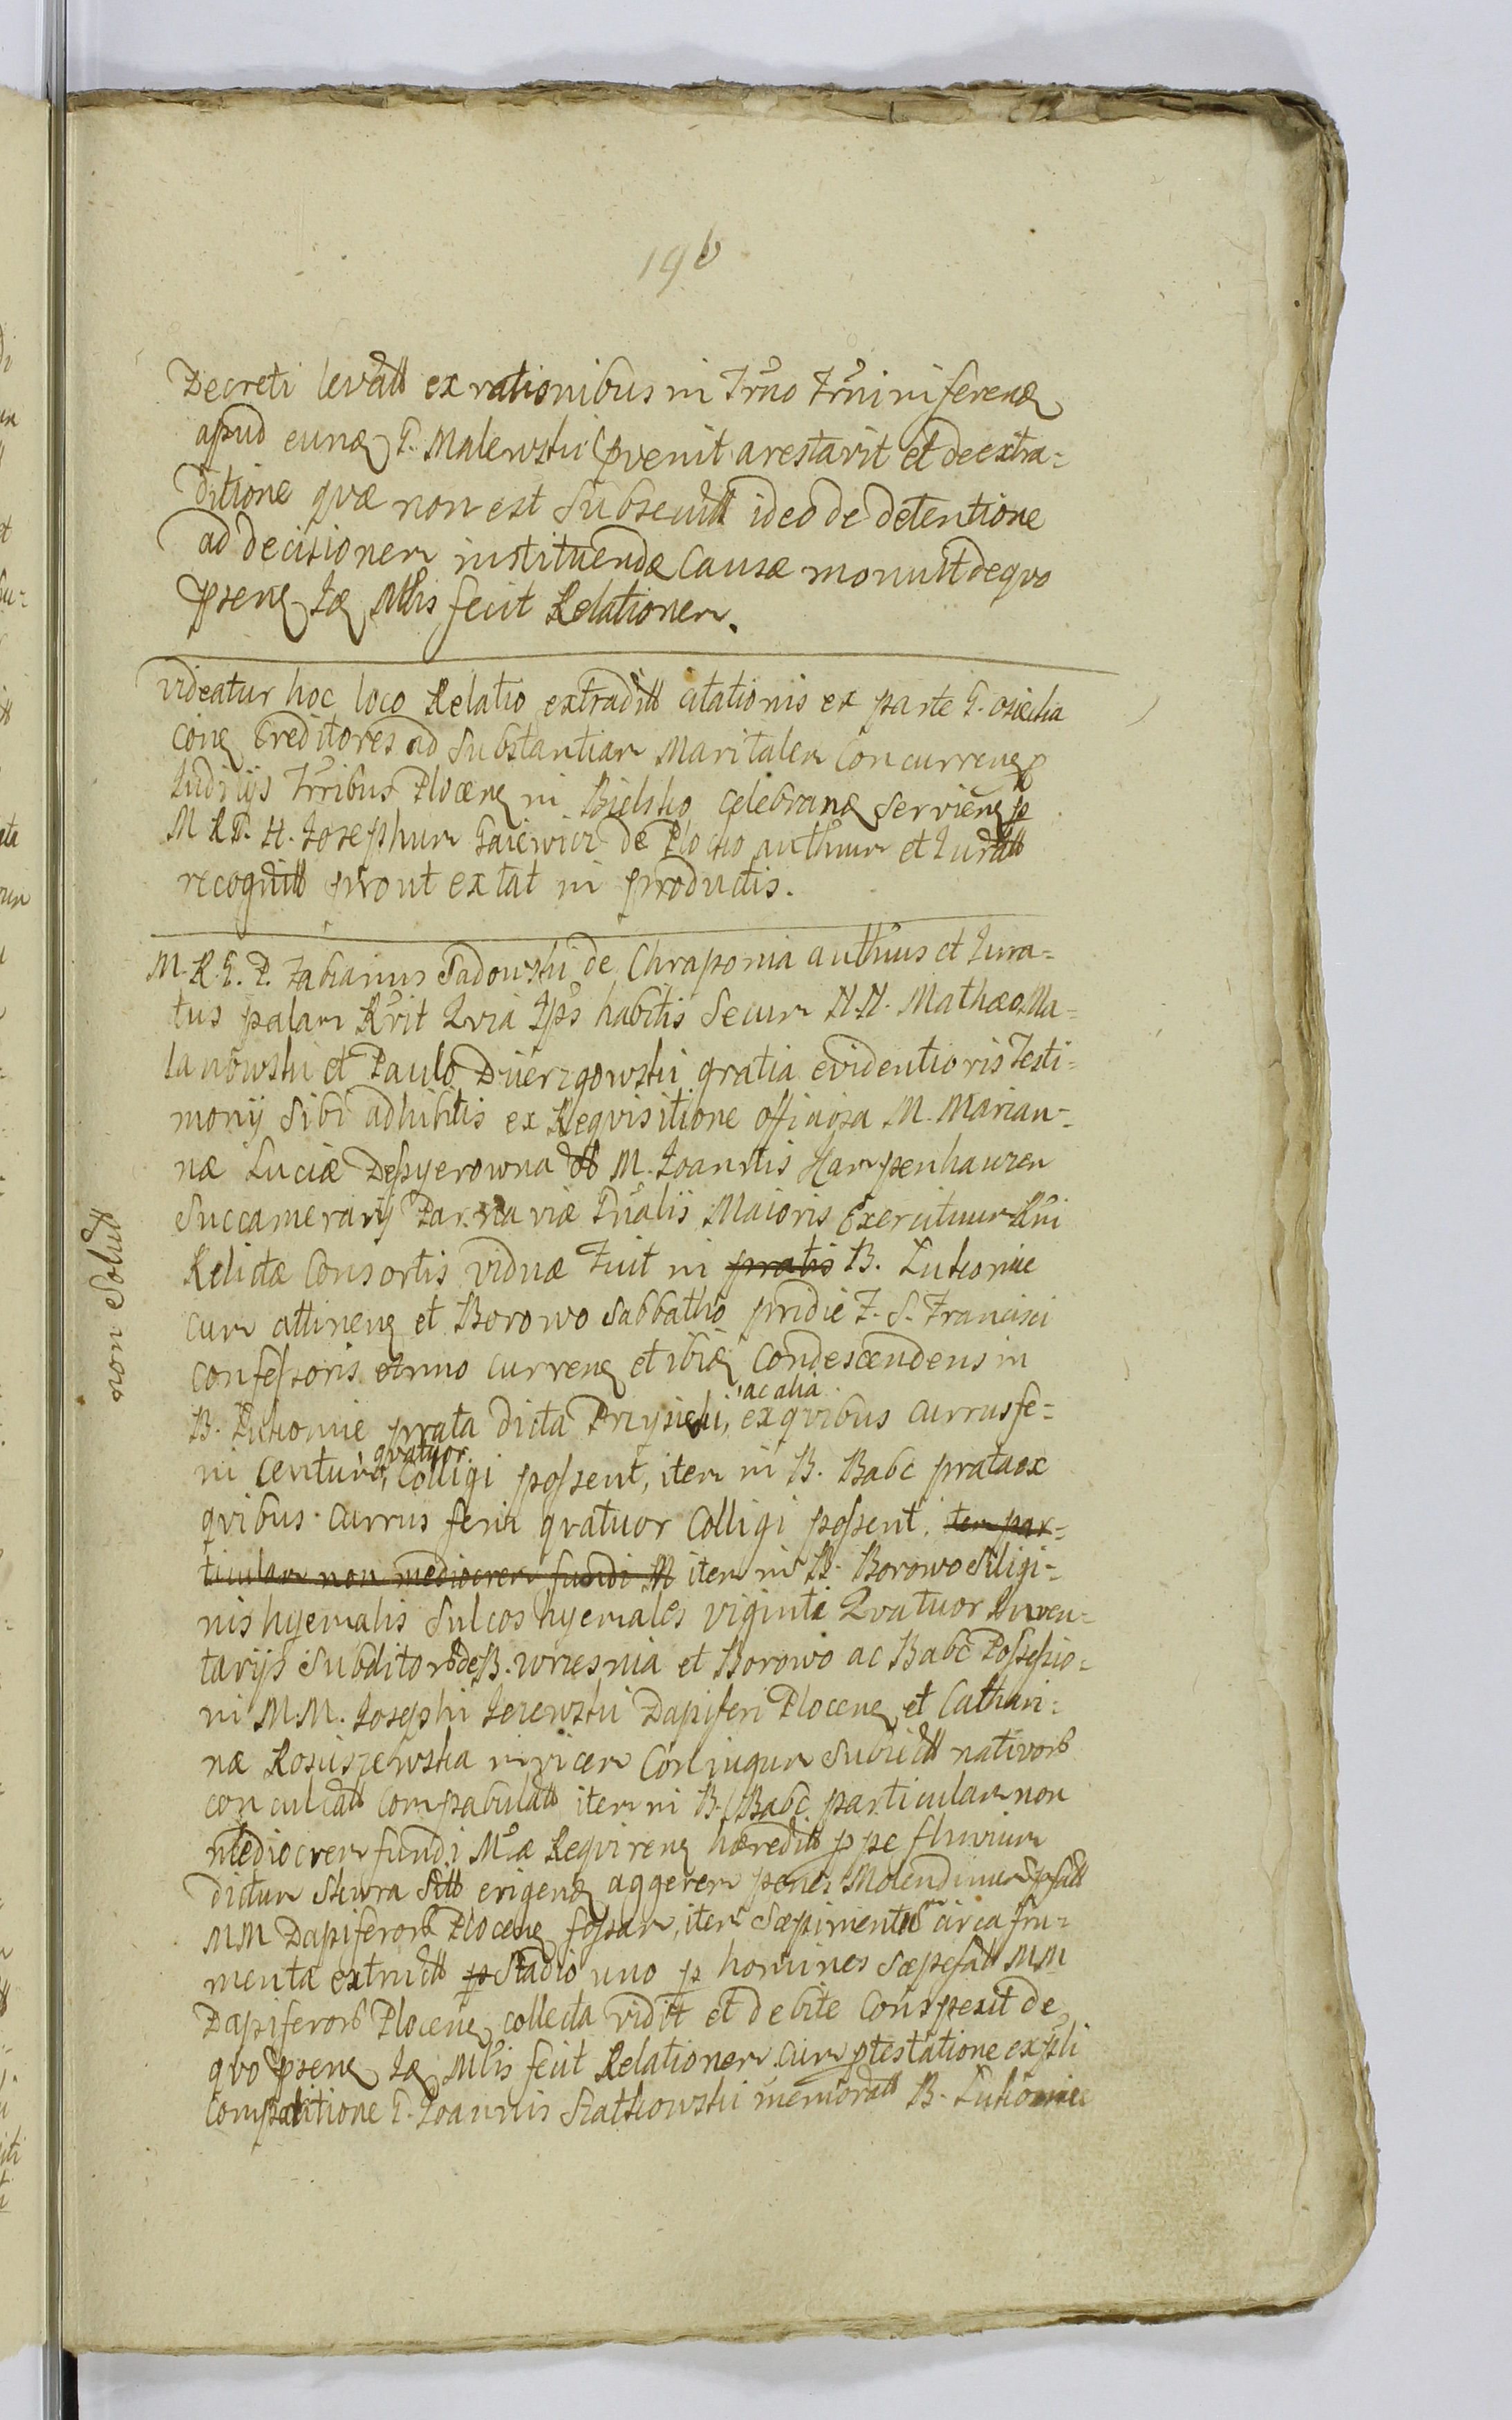 196
Decreti levatt ex rationibus in Trno Trnini ferenꝫ
apud eunꝫ G. Malewski pvenit arestavit et de extra-
ditione qvæ non est Subsecutt ideo de detentione
ad decisionem instituendæ Causæ monuit de qvo
pseneꝫ Iæ Mtis fecit Relationem.
videatur hoc loco Relatio extraditt citationis ex parte G.
cone Creditores ad Substantiam Maritalem Concurreneꝫ
Iudicijs Trribus Ploceneꝫ in Bielsko celebranꝫ Servieneꝫ p
M R G. H. Josephum Gaiewicz de Plocko authum et Juratt
recognitt prout extat in productis.
M. R. G. P. Fabianus Sadowski de Chraponia authus et Jura-
tus palam Rrit Qvia Ips habitis Secum N.N. Mathæo Ma-
lanowski et Paulo Dzierzgowski gratia evidentioris Testi-
monij Sibi adhibitis ex Reqvisitione officiosa M. Marian-
næ Luciæ Despyerowna M. Joannis Hampenhauzen
Succamerarij Parnaviæ Gnalis Maioris Exercituum Rni
Relictæ Consortis viduæ Fuit in pratis B. Lukomie
cum attineneꝫ et Borowo Sabbatho pridie F. S. Francisci
Confessoris anno curreneꝫ et ibiꝫ Condescendens in
B. Lukomie prata dicta Przysieki, ac alia ex qvibus currus fe-
ni Centum, qvatuor Colligi possent, item in B. Babc prata ex
qvibus Currus feni qvatuor Colligi possent. item par-
ticulam non mediocrem fundi M item in B. Borowo Siligi-
nis hyemalis Sulcos hyemales viginti Qvatuor Inven-
tarijs Subditorb de B. Wrzesnia et Borowo ac Babc Possessio-
ni M.M. Josephi Jezewski Dapiferi Ploceneꝫ et Cathari-
næ Kosciszewska invicem Coniugum Subiectt nativorb
conculcatt Compabulatt item in B. Babc particulam non
mediocrem fundi Mcæ Reqvireneꝫ hæreditt p pe fluvium
dictum Skwa Sitt erigenꝫ aggerem penes Molendinum Spsatt
MM Dapiferorb Ploceneꝫ fossam, item Sæpimenta circa fru-
menta extructt p Stadio uno p homines Sæpefatt MM
Dapiferorb Ploceneꝫ collecta vidit et debite Conspexit de
qvo pseneꝫ Iæ Mtis fecit Relationem cum ptestatione expli
Comparitione G. Joannis Szatkowski memoratt B. Lukomie
non Solutt